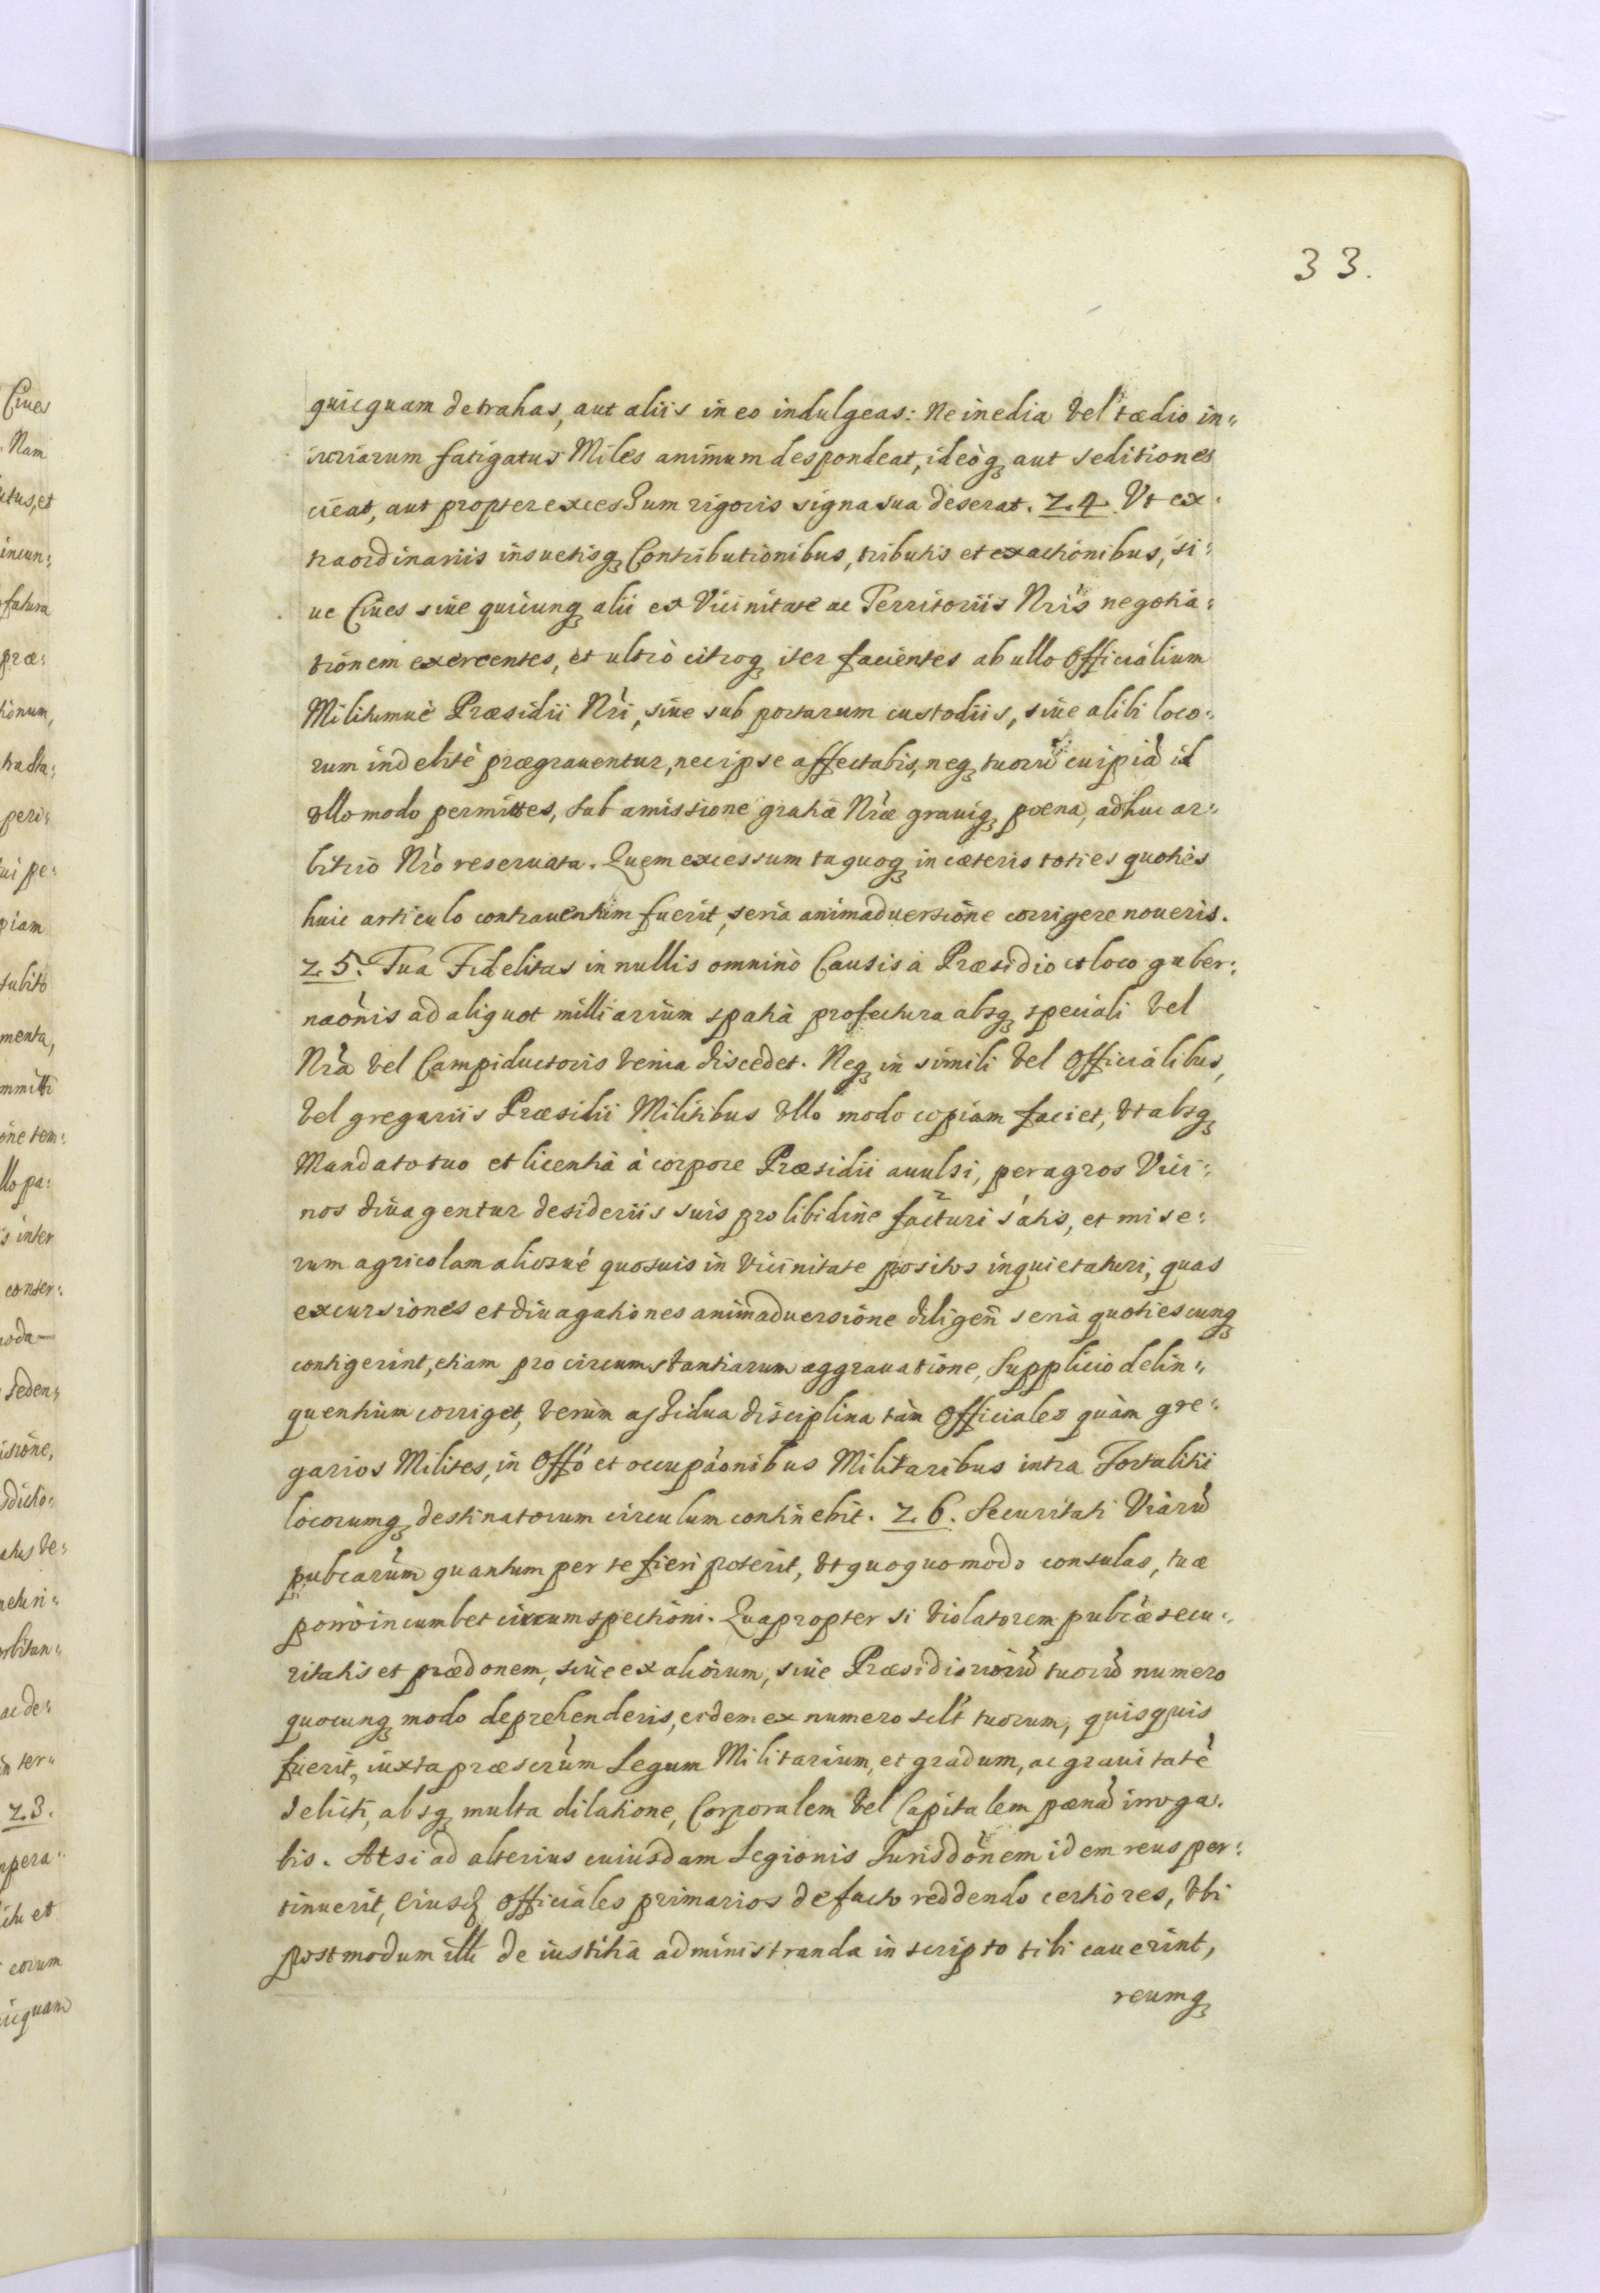 33.
quicquam detrahas, aut aliis in eo indulgeas: Ne inedia vel tædio in:
iuriarum fatigatus Miles animum despondeat, ideòq; aut seditiones
cieat, aut propter excessum rigoris signa sua deserat. 24. Vt ex:
traordinariis insuetisq; Contributionibus, tributis et exactionibus, si:
ue Ciues siue quicunq; alii ex Vicinitate ac Territoriis Nrìs negotia:
tionem exercentes, et ultrò citroq; iter facientes ab ullo Officialium
Militumuè Præsidii Nrì, siue sub portarum custodiis, siue alibi loco:
rum indebitè prægrauentur, nec ipse affectabis, neq; tuorù cuipiã id
vllo modo permittes, sub amissione gratiæ Nrìæ grauiq; poena, adhuc ar:
bitrio Nrò reseruata. Quem excessum tu quoq; in cæteris toties quoties
huic articulo contrauentum fuerit, seria animaduersione corrigere noueris.
25. Tua Fidelitas in nullis omninò Causis à Præsidio et loco guber:
naõnis ad aliquot milliarium spatia profectura absq; speciali vel
Nrà vel Campiductoris venia discedet. Neq; in simili vel Officialibus,
vel gregariis Præsidii Militibus vllo modo copiam faciet, vt absq;
Mandato tuo et licentia à corpore Præsidii auulsi, per agros Vici:
nos diuagentur desideriis suis pro libidine facturi satis, et mise:
rum agricolam aliosué quosuis in vicinitate positos inquietaturi, quas
excursiones et diuagationes animaduersione diligeñ seria quotiescunq;
contigerint, etiam pro circumstantiarum aggrauatione, Supplicio delin:
quentium corriget, verùm assidua disciplina tàm Officiales quàm gre:
garios Milites, in Offó et occupaõnibus Militaribus intra Fortalitii
locorumq; destinatorum circulum continebit. 26. Securitati Viarù
pubcarùm quantum per te fieri poterit, vt quoquomodo consulas, tuæ
porrò incumbet circumspectioni. Quapropter si violatorem pubcæ secu:
ritatis et prædonem, siue ex aliorum, siue Præsidiariorù tuorù numero
quocunq; modo deprehenderis, eidem ex numero sclt tuorum, quisquis
fuerit, iuxta præscrùm Legum Militarium, et gradum, ac grauitatè
delicti, absq; multa dilatione, Corporalem vel Capitalem pænã irroga:
bis. At si ad alterius cuiusdam Legionis Jurisdõnem idem reus per:
tinuerit, Eiusd Officiales primarios de facto reddendo certiores, vbi
postmodum illi de iustitia administranda in scripto tibi cauerint,
reumq;
Ciues
Nam